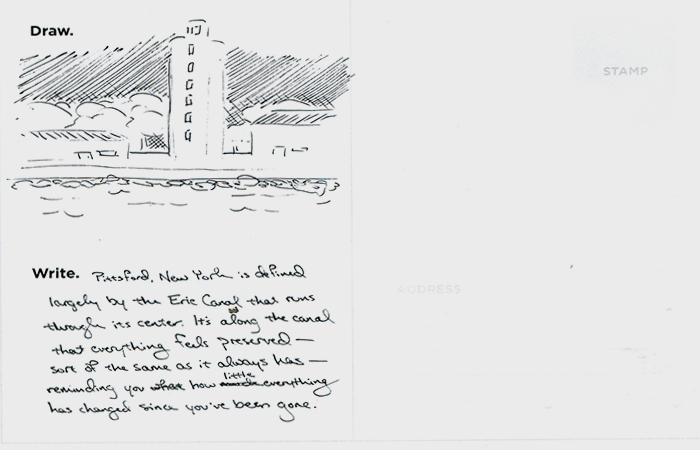 Draw.
STAMP
Write. Pittsford, New York is defined
ADDRESS
largely by the Erie Canal that runs
through its center. It's along the canal
that everything feels preserved —
sort of the same as it always has —
little
reminding you what how much everything
has changed since you've been gone.